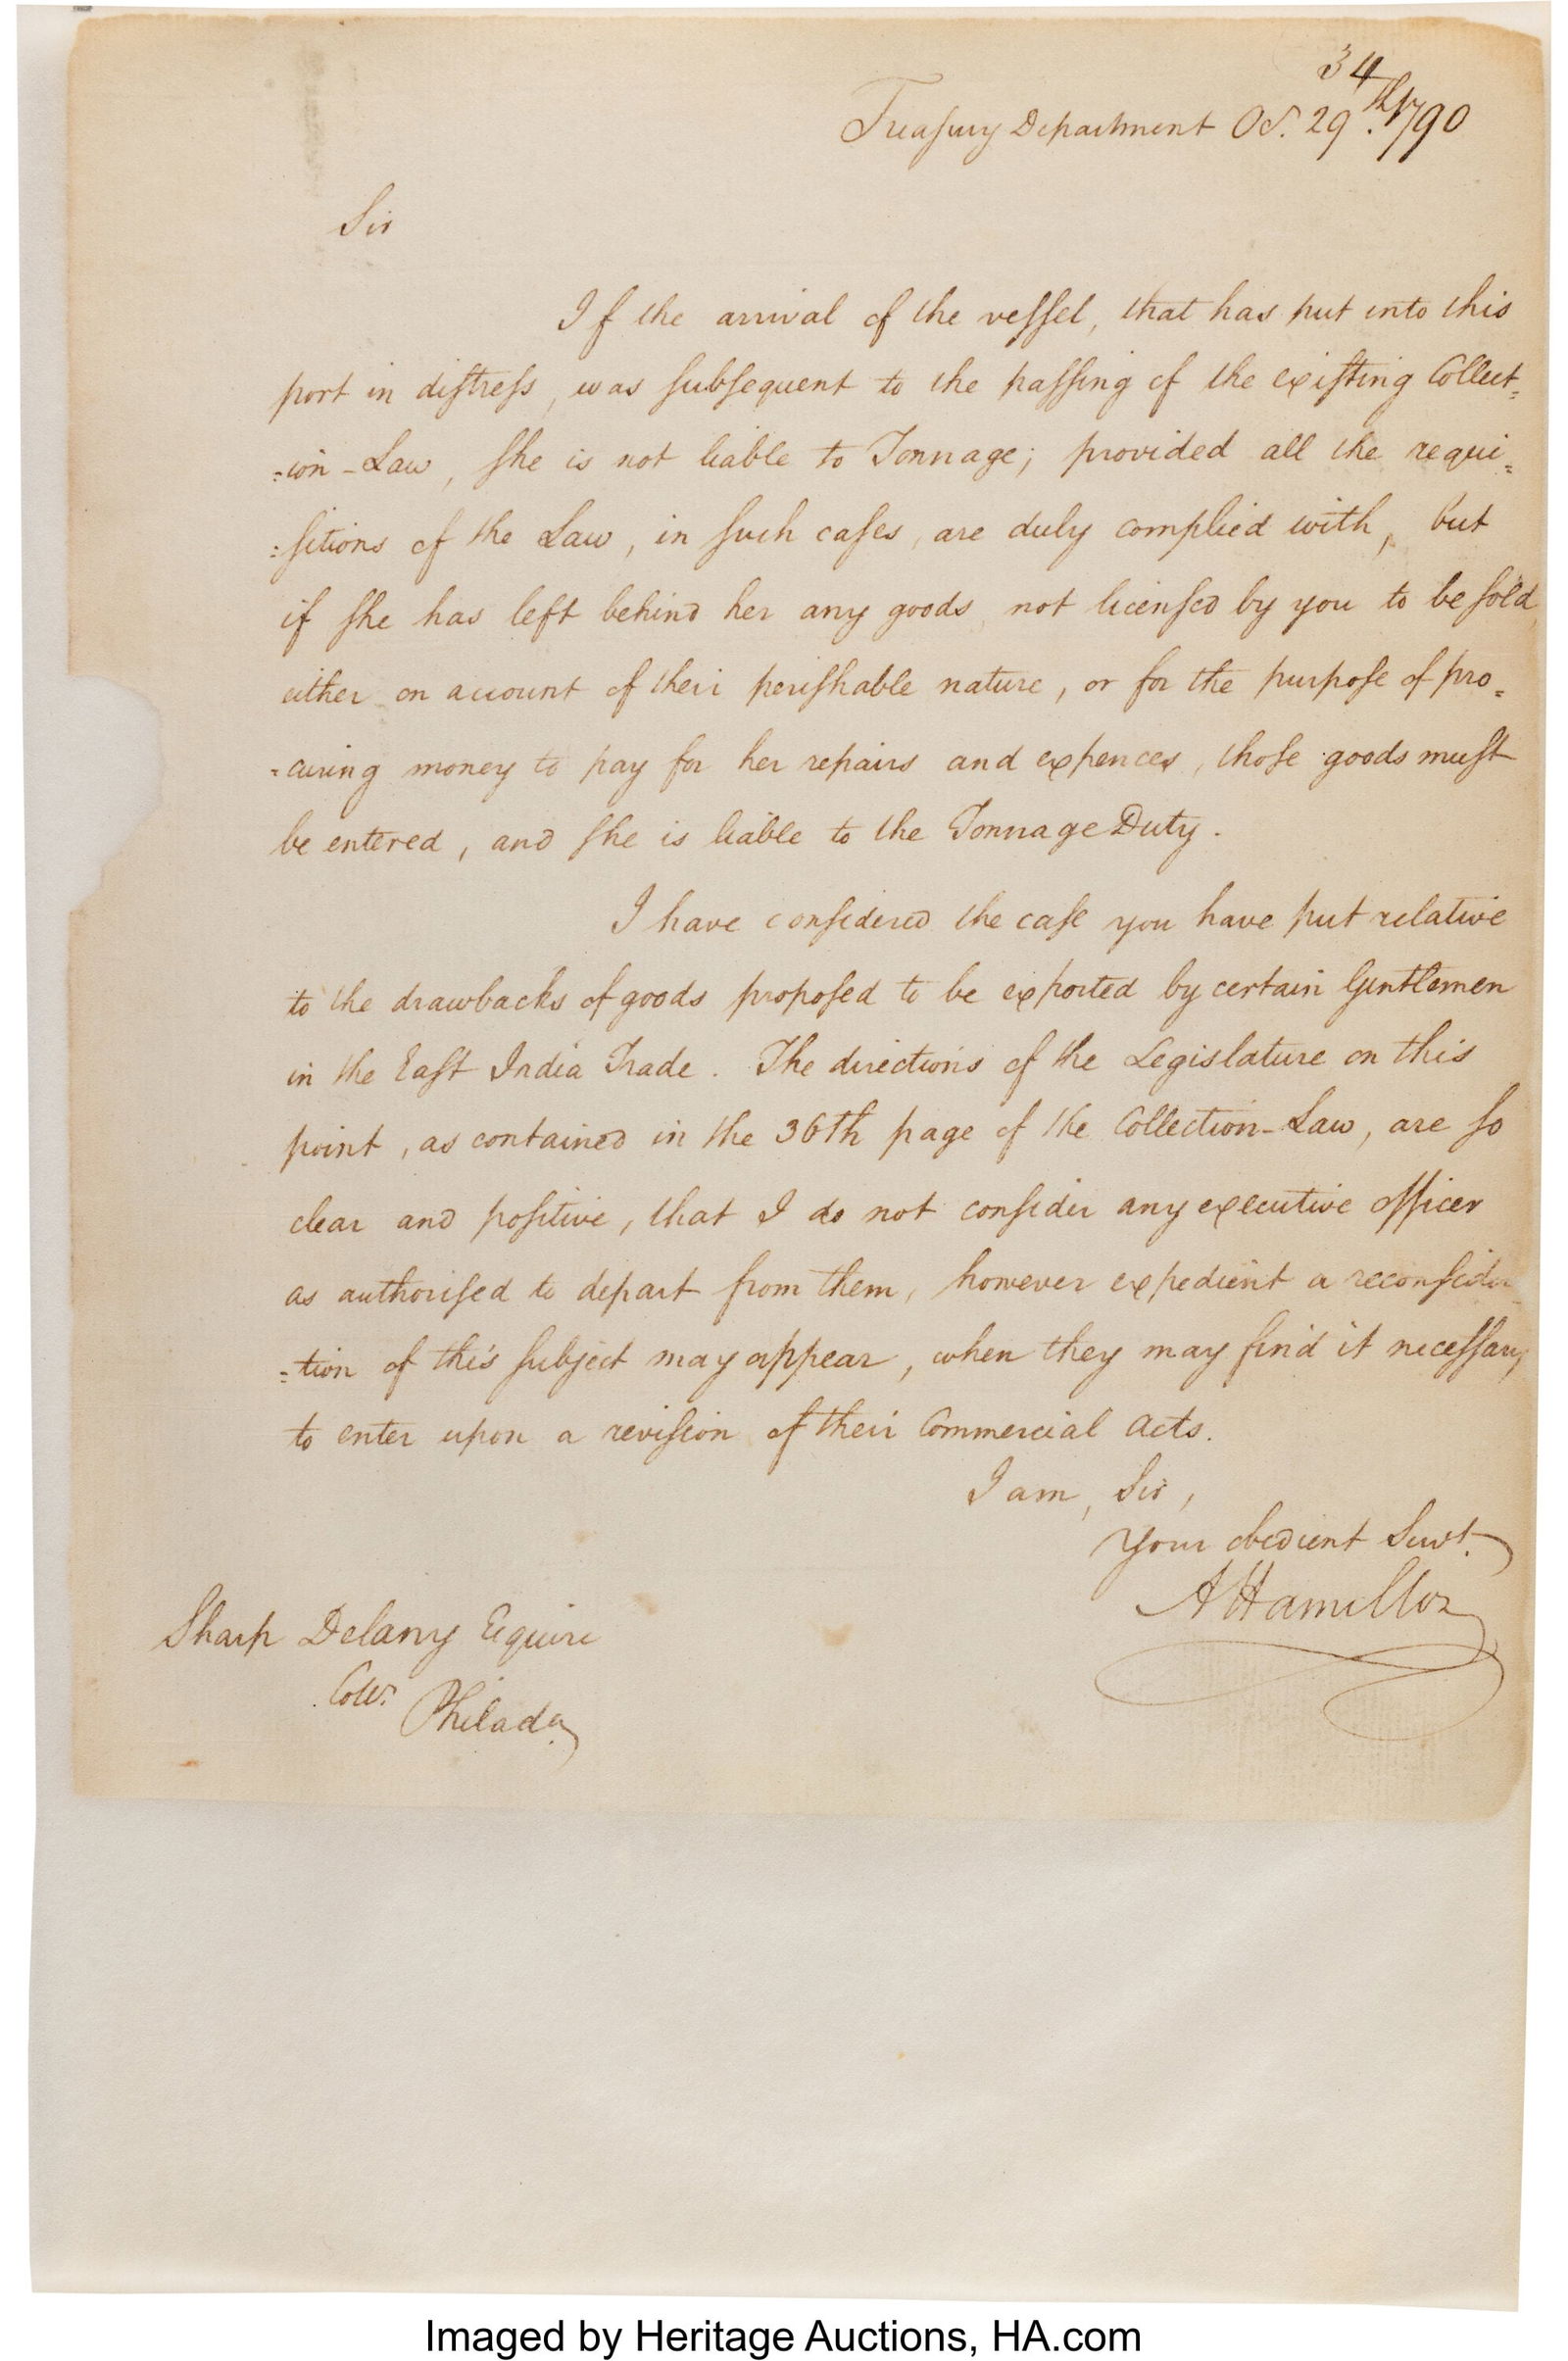 34
Treasury Department Oct. 29th. 1790
Sir
If the arrival of the vessel, that has put into this
port in distress, was subsequent to the passing of the existing Collect=
=ion-Law, she is not liable to Tonnage; provided all the requi=
=sitions of the Law, in such cases, are duly complied with, but
if she has left behind her any goods, not licensed by you to be sold,
either on account of their perishable nature, or for the purpose of pro=
=curing money to pay for her repairs and expences, those goods must
be entered, and she is liable to the Tonnage Duty.
I have considered the case you have put relative
to the drawbacks of goods proposed to be exported by certain Gentlemen
in the East India Trade. The directions of the Legislature on this
point, as contained in the 36th page of the Collection-Law, are so
clear and positive, that I do not consider any executive officer
as authorised to depart from them, however expedient a reconsidera=
=tion of this subject may appear, when they may find it necessary
to enter upon a revision of their Commercial Acts.
I am, Sir,
Your obedient Servt.
A Hamilton
Sharp Delany Esquire
Collr.
Philada.
Imaged by Heritage Auctions, HA.com